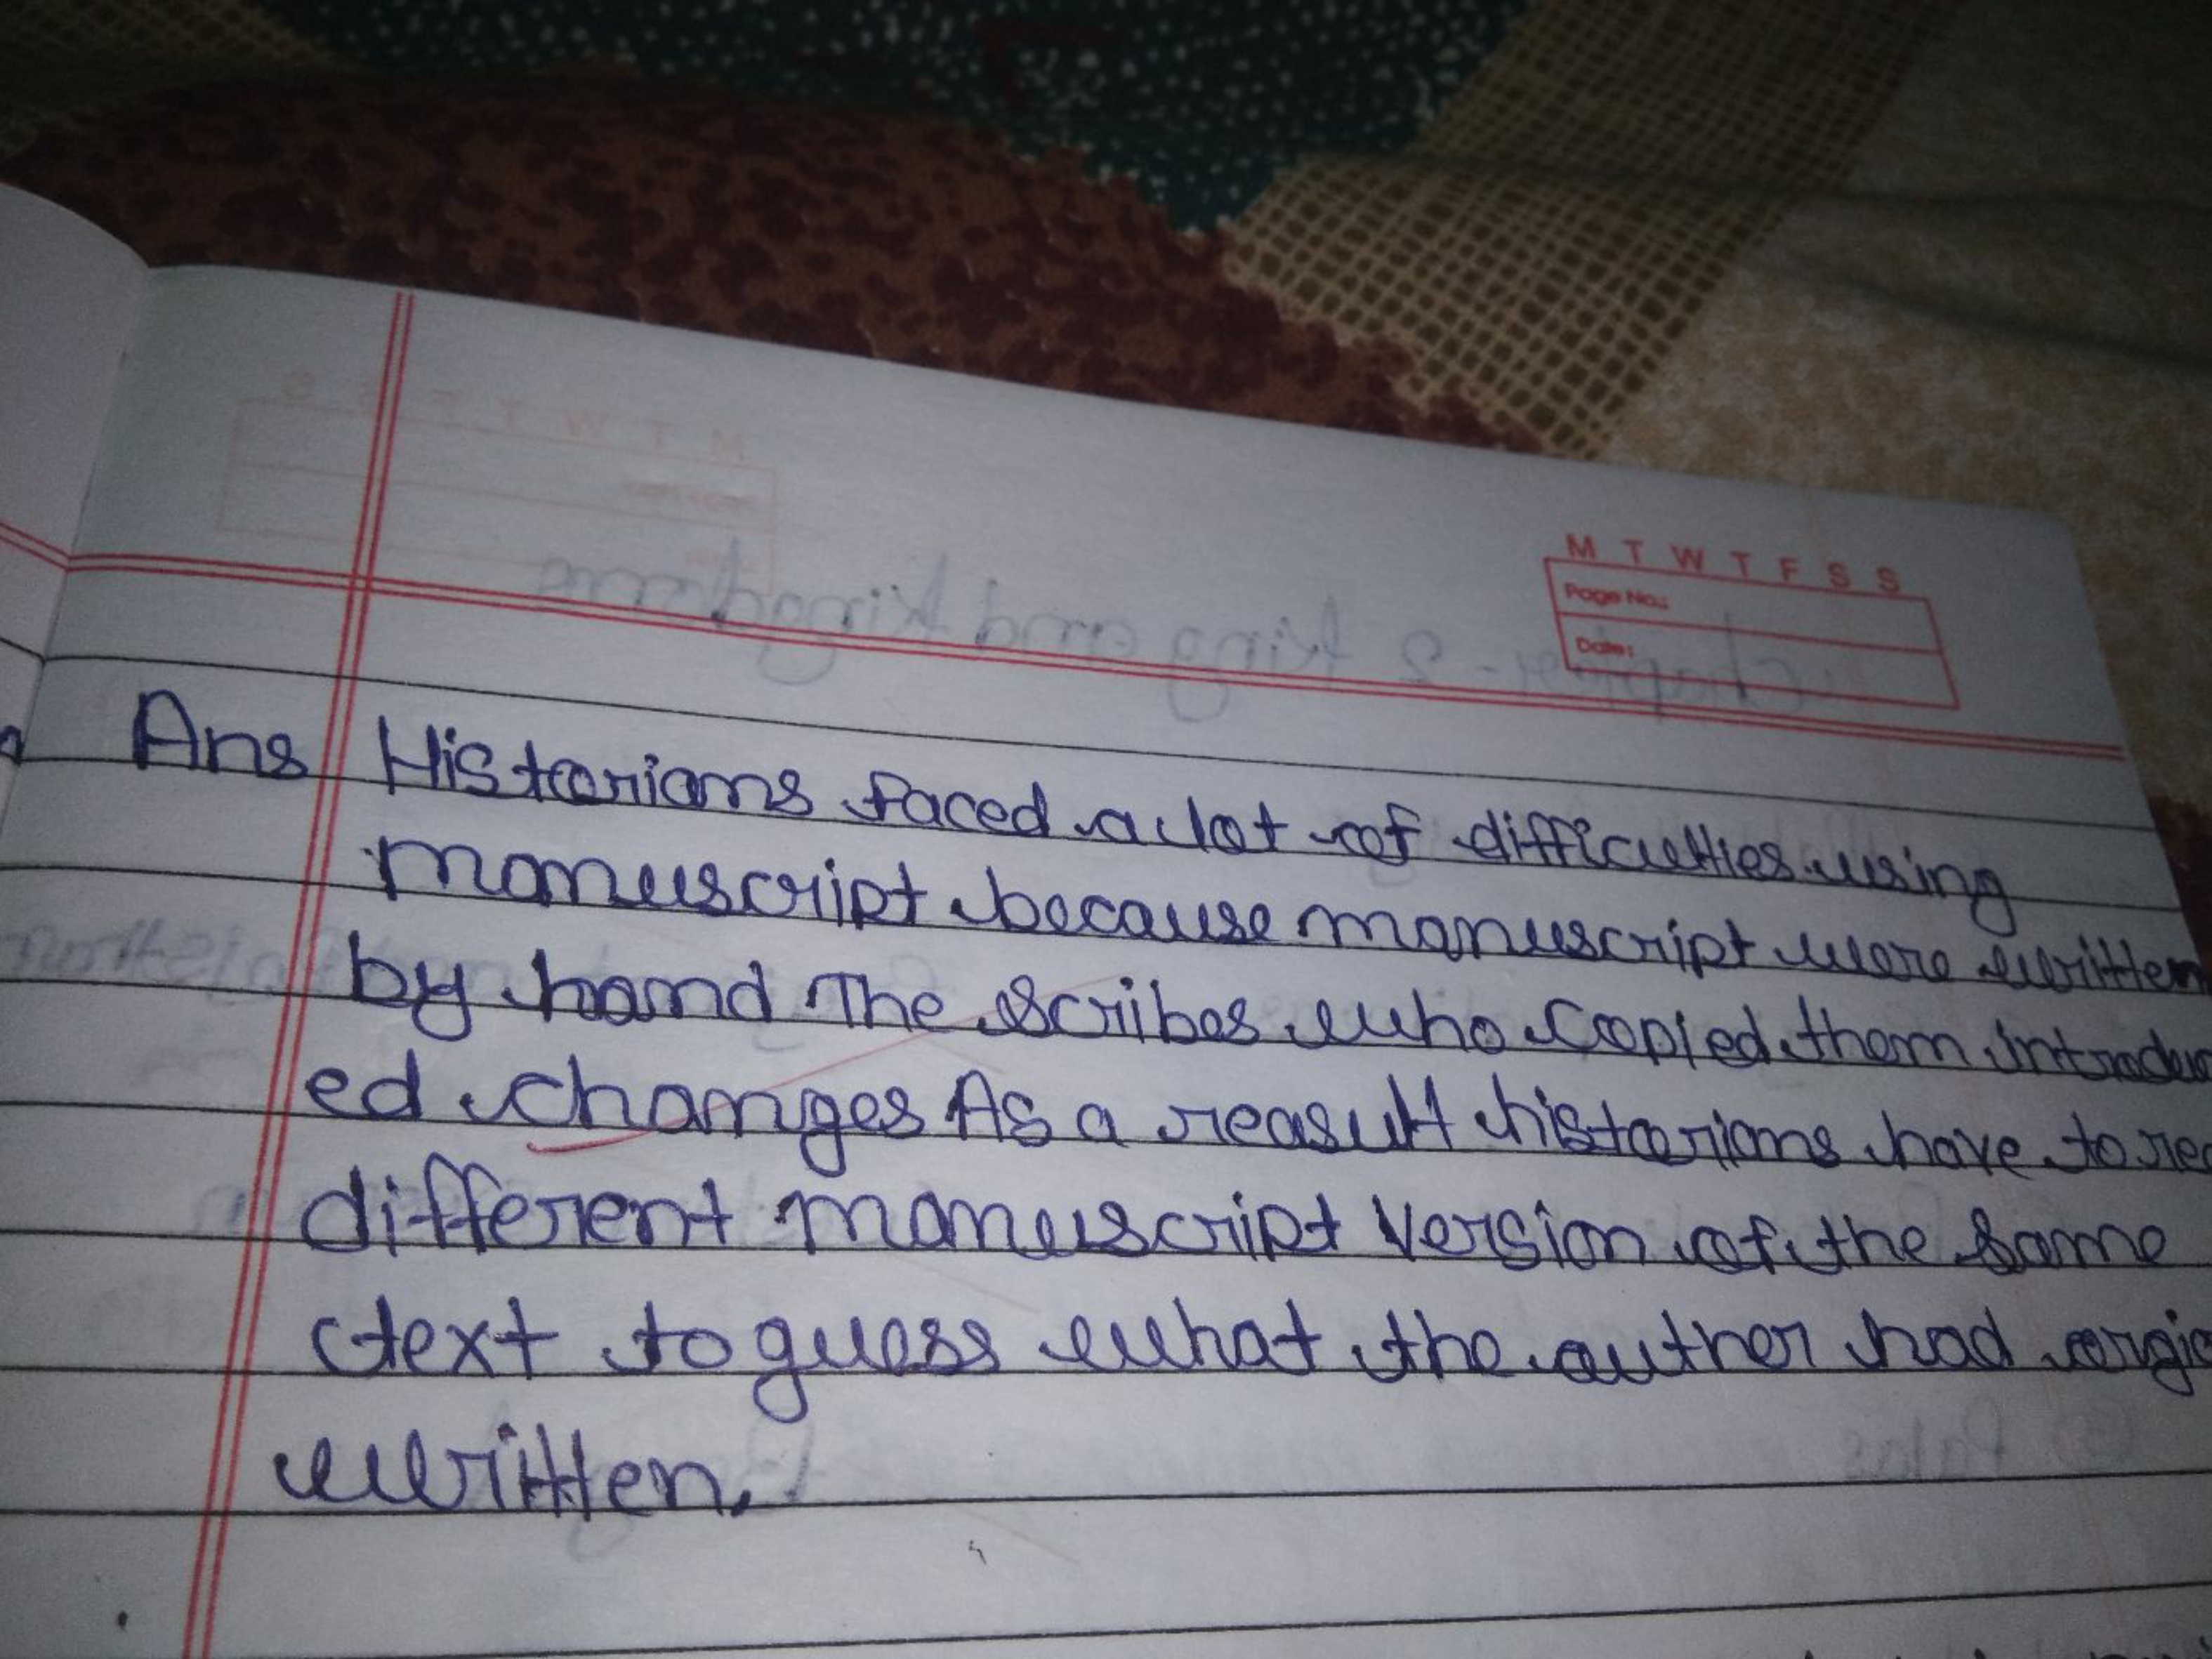 M T W T F S S
Page No.:
Date:
Chapter-2 King and Kingdoms
Ans Historians faced a lot of difficulties using
manuscript because manuscript were written
by hand The scribes who copied them introduc
ed changes As a reasult historians have to rea
different manuscript Version of the same
text to guess what the auther had orgi
written.
Palas